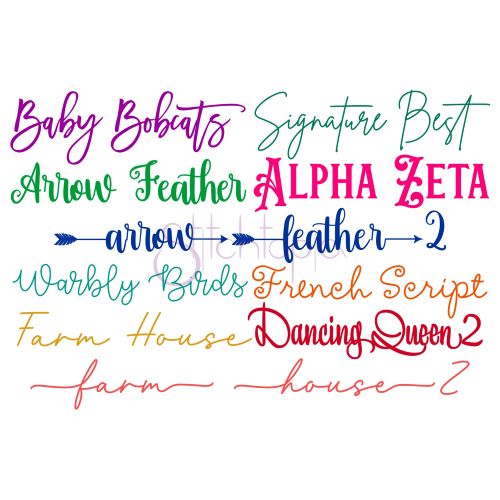 Baby Bobcats Signature Best
Arrow Feather Alpha Zeta
arrow feather 2
Stitchtopia
Warbly Birds French Script
Farm House Dancing Queen 2
farm house 2